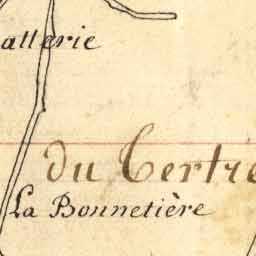 atterie
du Tertre
La Bonnetière